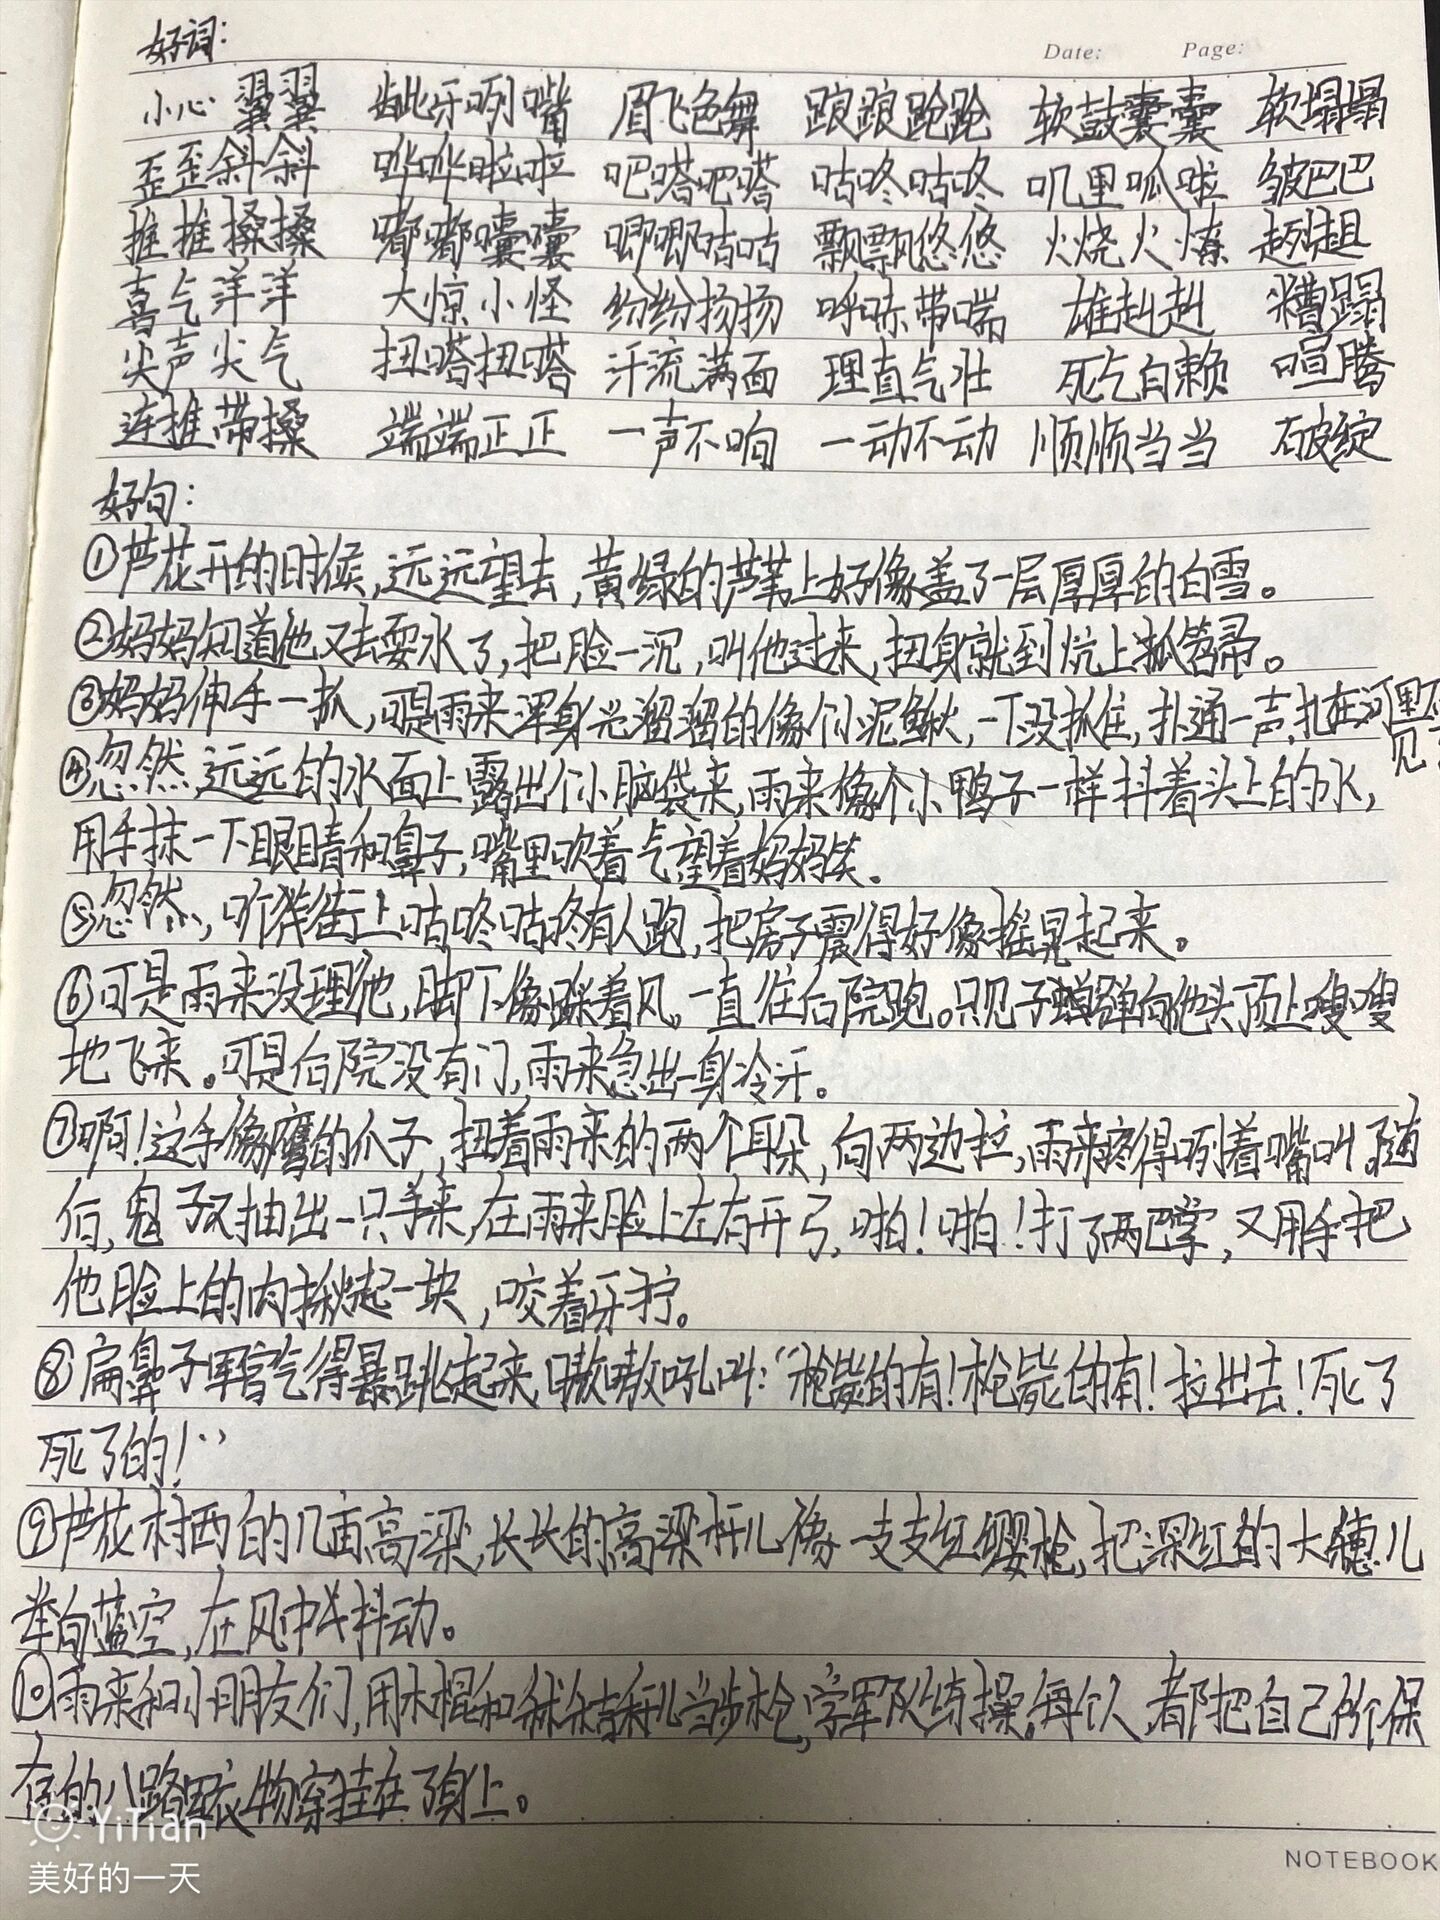 好词：
Date: Page:
小心翼翼 龇牙咧嘴 眉飞色舞 踉踉跄跄 软鼓囊囊 软塌塌
歪歪斜斜 哗哗啦啦 吧嗒吧嗒 咕咚咕咚 叽里呱啦 皱巴巴
推推搡搡 嘟嘟囔囔 唧唧咕咕 飘飘悠悠 火烧火燎 趔趄
喜气洋洋 大惊小怪 纷纷扬扬 呼哧带喘 雄赳赳 糟蹋
尖声尖气 扭嗒扭嗒 汗流满面 理直气壮 死乞白赖 喧腾
连推带搡 端端正正 一声不响 一动不动 顺顺当当 破绽
好句：
①芦花开的时候，远远望去，黄绿的芦苇上好像盖了一层厚厚的白雪。
②妈妈知道他又去耍水了，把脸一沉，叫他过来，扭身就到炕上抓笤帚。
③妈妈伸手一抓，可是雨来浑身光溜溜的像个小泥鳅，一下没抓住，扑通一声，扎在河里不
见了
④忽然，远远的水面上露出个小脑袋来，雨来像个小鸭子一样抖着头上的水，
用手抹一下眼睛和鼻子，嘴里吹着气望着妈妈笑。
⑤忽然，听得街上咕咚咕咚有人跑，把房子震得好像摇晃起来。
⑥可是雨来没理他，脚下像踩着风，一直往后院跑。只见子弹向他头顶上嗖嗖
地飞来。可是后院没有门，雨来急出一身冷汗。
⑦啊！这手像鹰的爪子，扭着雨来的两个耳朵，向两边拉，雨来疼得咧着嘴叫。随
后，鬼子又抽出一只手来，在雨来脸上左右开弓，啪！啪！打了两巴掌，又用手把
他脸上的肉揪起一块，咬着牙拧。
⑧扁鼻子军官气得暴跳起来，嗷嗷吼叫：“枪毙的有！枪毙的有！拉出去！死了
死了的！”
⑨芦花村西的几亩高梁，长长的高梁秆儿像一支支红缨枪，把深红的大穗儿
举向蓝空，在风中抖动。
⑩雨来和小朋友们，用木棍和秫秸秆儿当步枪，学军队练操。每个人，都把自己所保
存的八路军衣物穿挂在了身上。
YiTian
美好的一天
NOTEBOOK